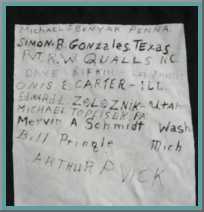 MICHAEL EBONYAK PENNA.
SIMON. B. Gonzales. Texas
PVT. R. W. QUALLS N.C.
DAVE
ONIS E. CARTER - ILL.
EDWARD ZELOZNIK - Utah
MICHAEL PA
Mervin A Schmidt Wash
Bill Pringle Mich
ARTHUR P VICK